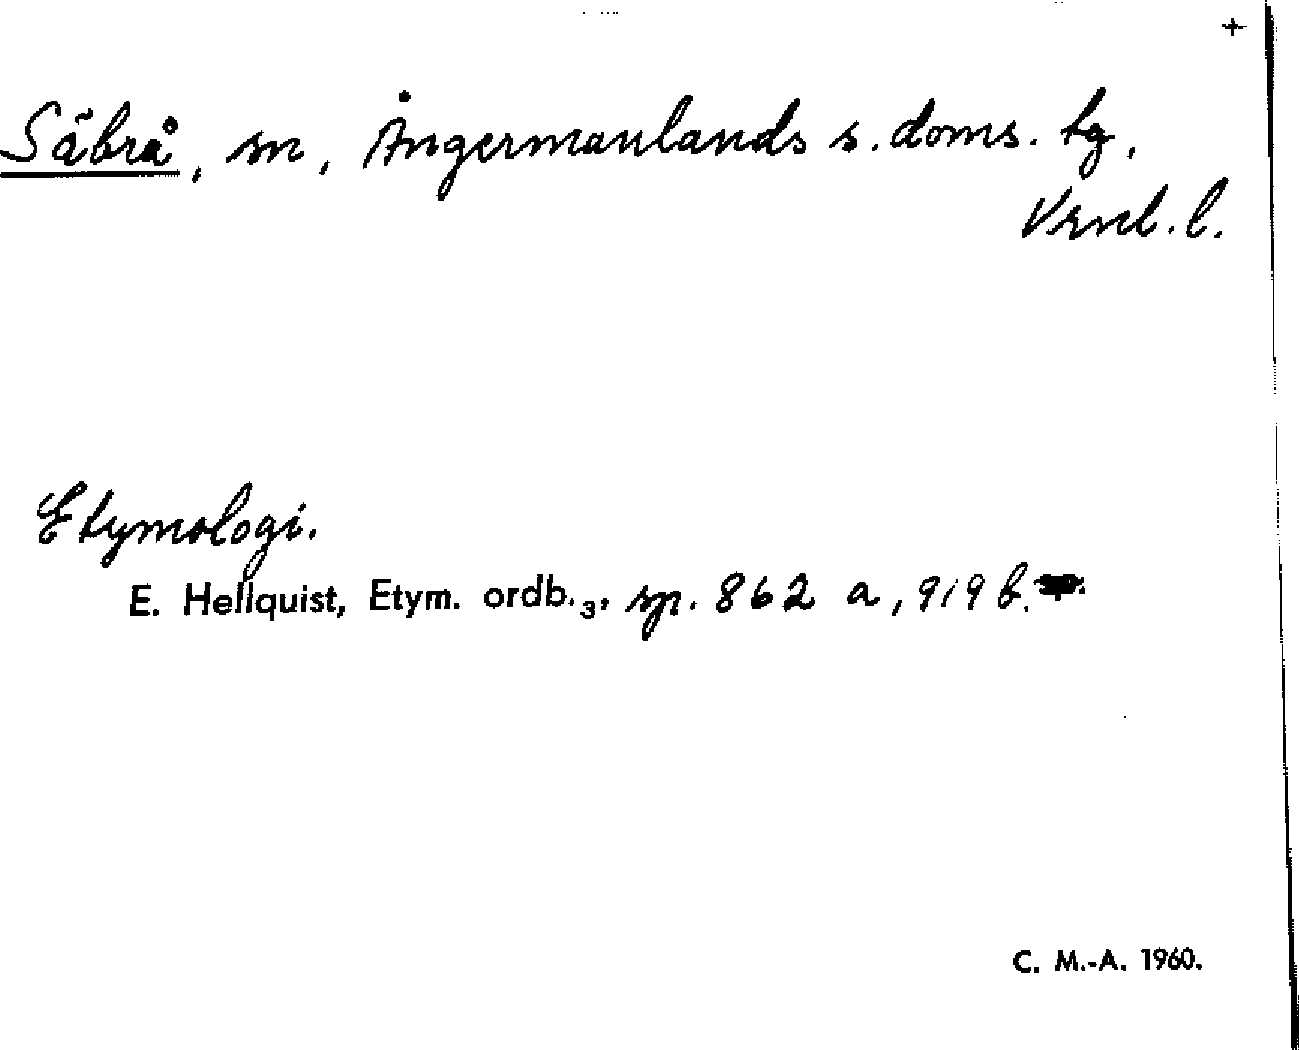 +
Säbrå, sn, Ångermanlands s. doms. tg,
Vrnl. l.
Etymologi.
E. Hellquist, Etym. ordb.₃, sp. 862 a, 919 b.
C. M.-A. 1960.